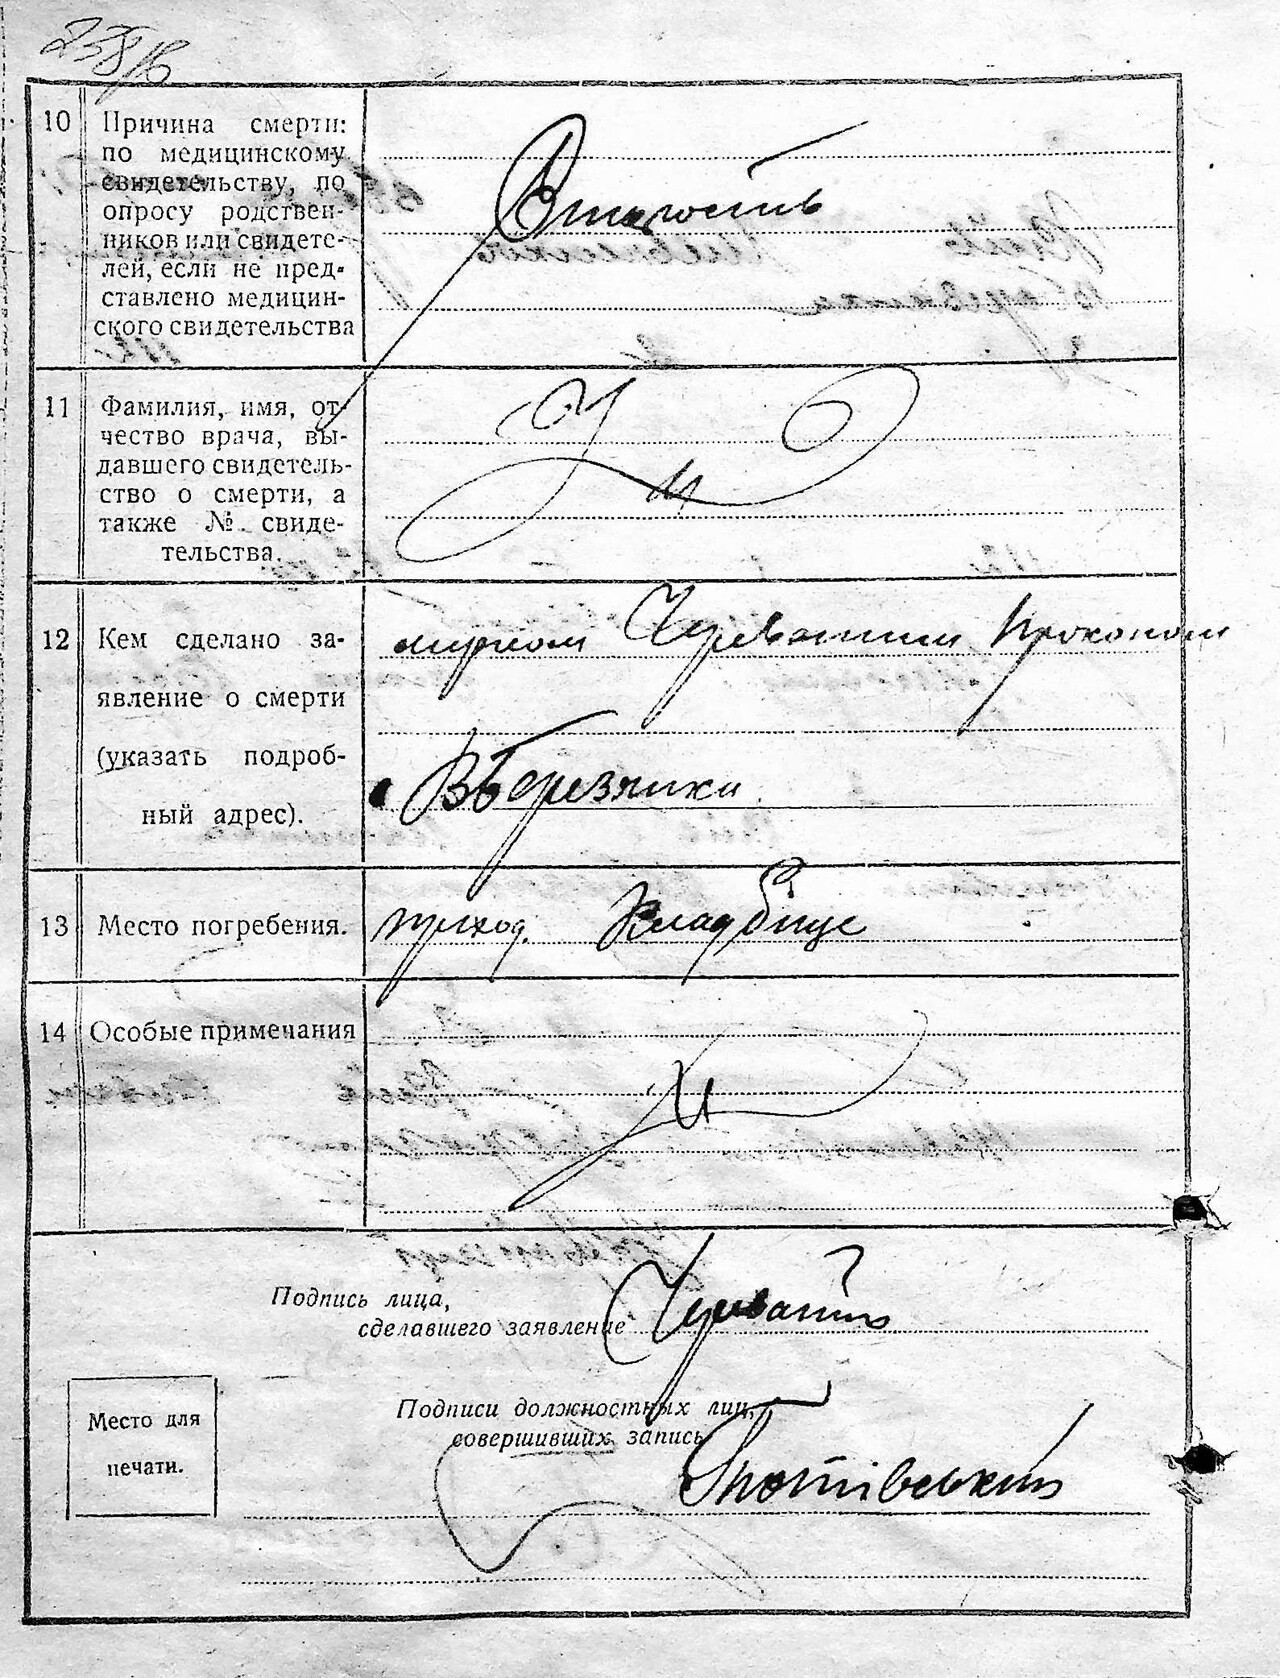 10 Причина смерти:
по медицинскому
свидетельству, по
опросу родствен-
ников или свидете-
лей, если не пред-
ставлено медицин-
ского свидетельства
Старость
11 Фамилия, имя, от-
чество врача, вы-
давшего свидетель-
ство о смерти, а
также № свиде-
тельства.
12 Кем сделано за-
явление о смерти
(указать подроб-
ный адрес).
Прокопом
Березняки
13 Место погребения.
приход. Кладбище
14 Особые примечания
Подпись лица,
сделавшего заявление
Подписи должностных лиц,
совершивших запись
Место для
печати.